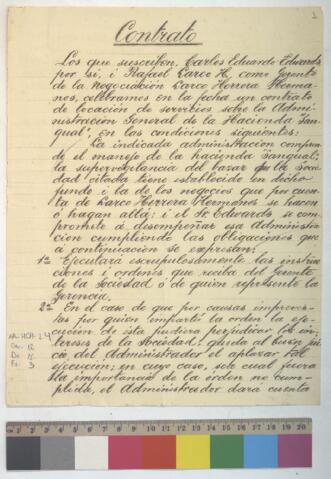 1
Contrato
Los que suscriben, Carlos Eduardo Edwards
por si, i Rafael Larco H, como Gerente
de la Negociación Larco Herrera Herma-
nos, celebramos en la fecha un contrato
de locación de servicios sobre la Admi-
nistración General de la Hacienda "San-
gual", en las condiciones siguientes:
La indicada administración compren-
de el manejo de la hacienda "Sangual";
la supervigilancia del bazar que la Socie-
dad citada tiene establecido en dicho
fundo i la de los negocios que por cuenta
de Larco Herrera Hermanos se hacen
ó hagan allá; i el Sr. Edwards se com-
promete á desempeñar esa Administra-
ción cumpliendo las obligaciones que
á continuación se expresan:
1a. Ejecutará escrupulosamente las instruc-
ciones i órdenes que reciba del Gerente
de la Sociedad ó de quien represente la
Gerencia.
2a. En el caso de que por causas imprevis-
tas por quien imparta la orden la eje-
cución de ésta pudiera perjudicar los in-
tereses de la Sociedad, queda al buen jui-
cio del Administrador el aplazar tal
ejecución; en cuyo caso, sea cual fuera
la importancia de la órden no cum-
plida, el Administrador dará cuenta
AA-HCH-L4
Ca. 12
Do. 15
Fs. 3
1 2 3 4 5 6 7 8 9 10 11 12 13 14 15 16 17 18 19 20